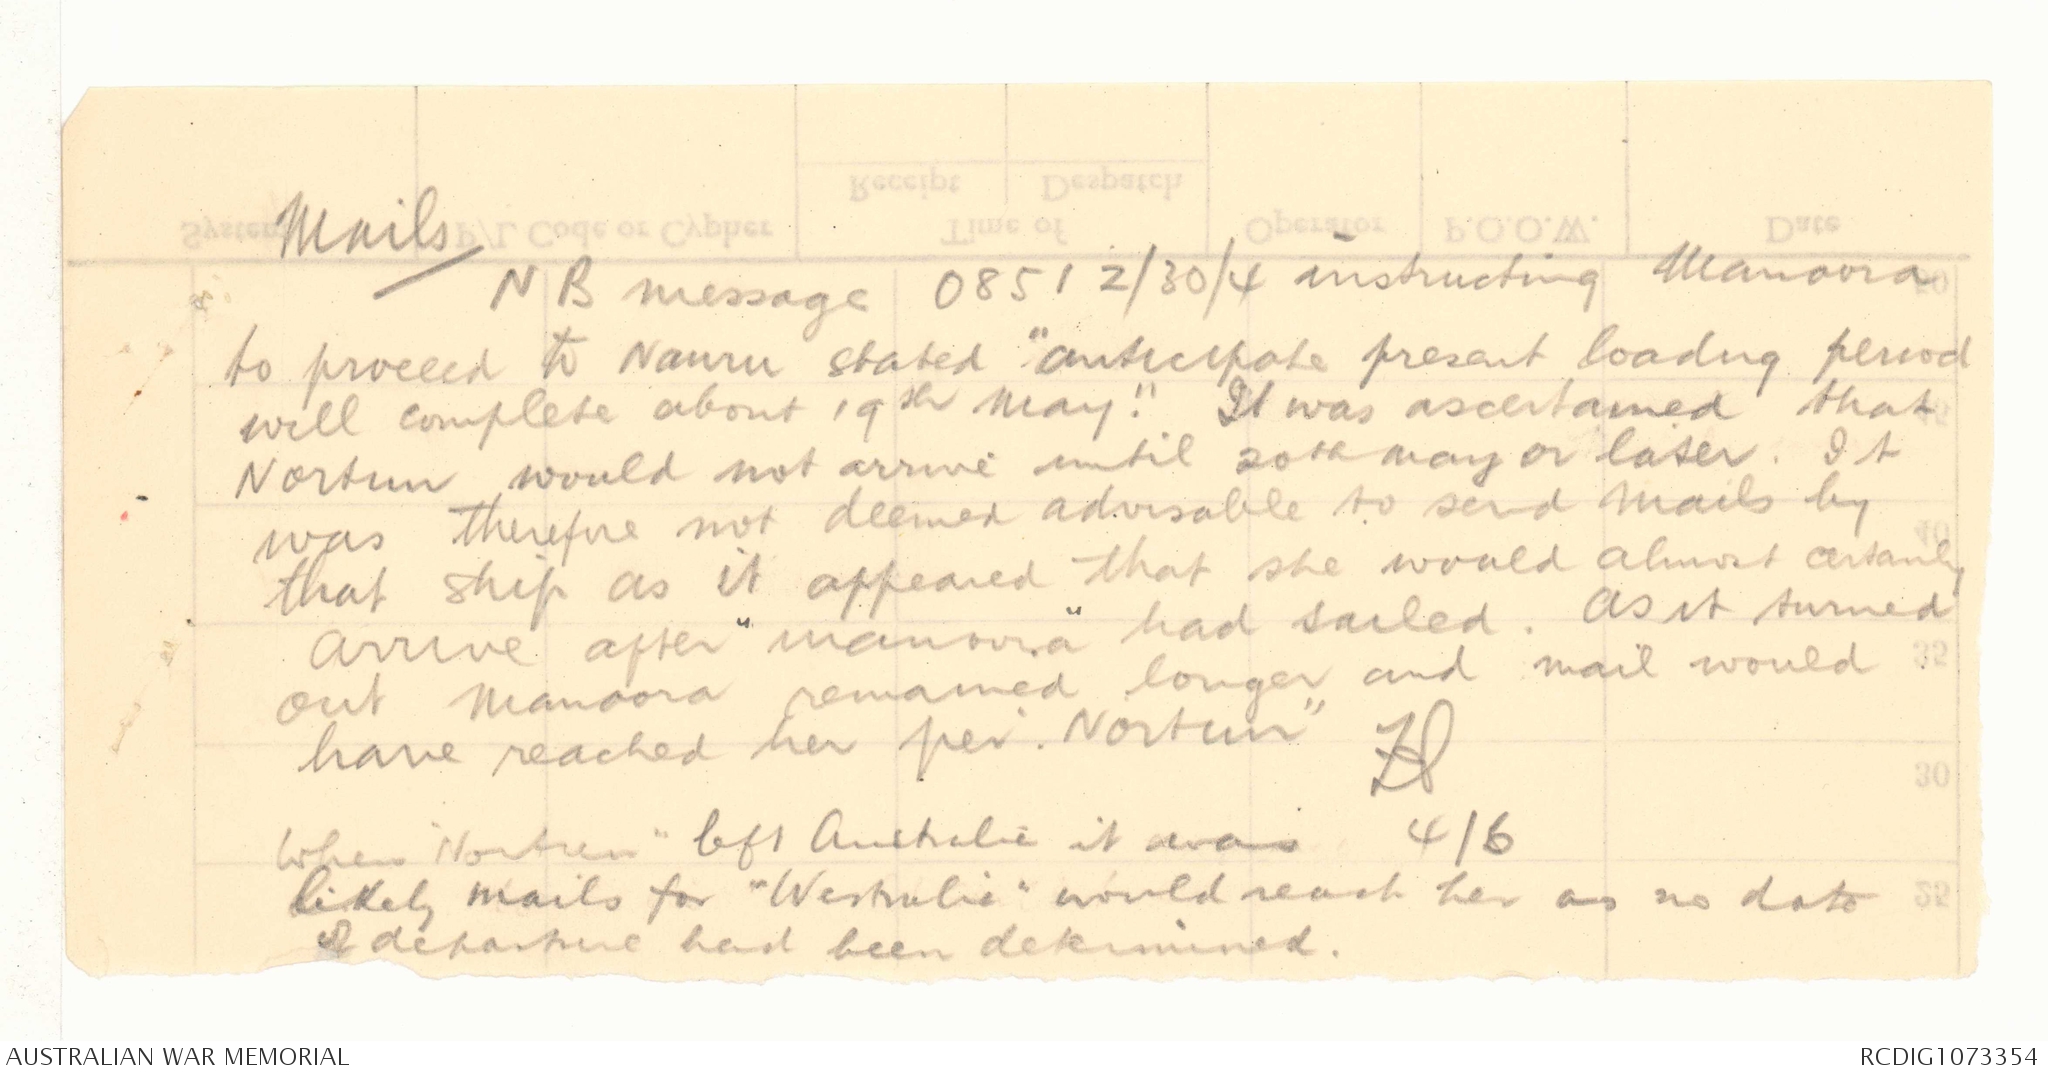 Mails
NB message 0851 2/30/4 instructing Manoora
to proceed to Nauru stated "anticipate present loading period
will complete about 19th May." It was ascertained that
Nortun would not arrive until 20th May or later. It
was therefore not deemed advisable to send mails by
that ship as it appeared that she would almost certainly
arrive after "Manoora" had sailed. As it turned
out Manoora remained longer and mail would
have reached her per. Nortun"
4/6
When "Nortun" left Australia it was
likely mails for "Westralia" would reach her as no date
of departure had been determined.
System P/L Code or Cypher Time of Receipt Despatch Operator P.O.O.W. Date
40
35
30
25
AUSTRALIAN WAR MEMORIAL
RCDIG1073354